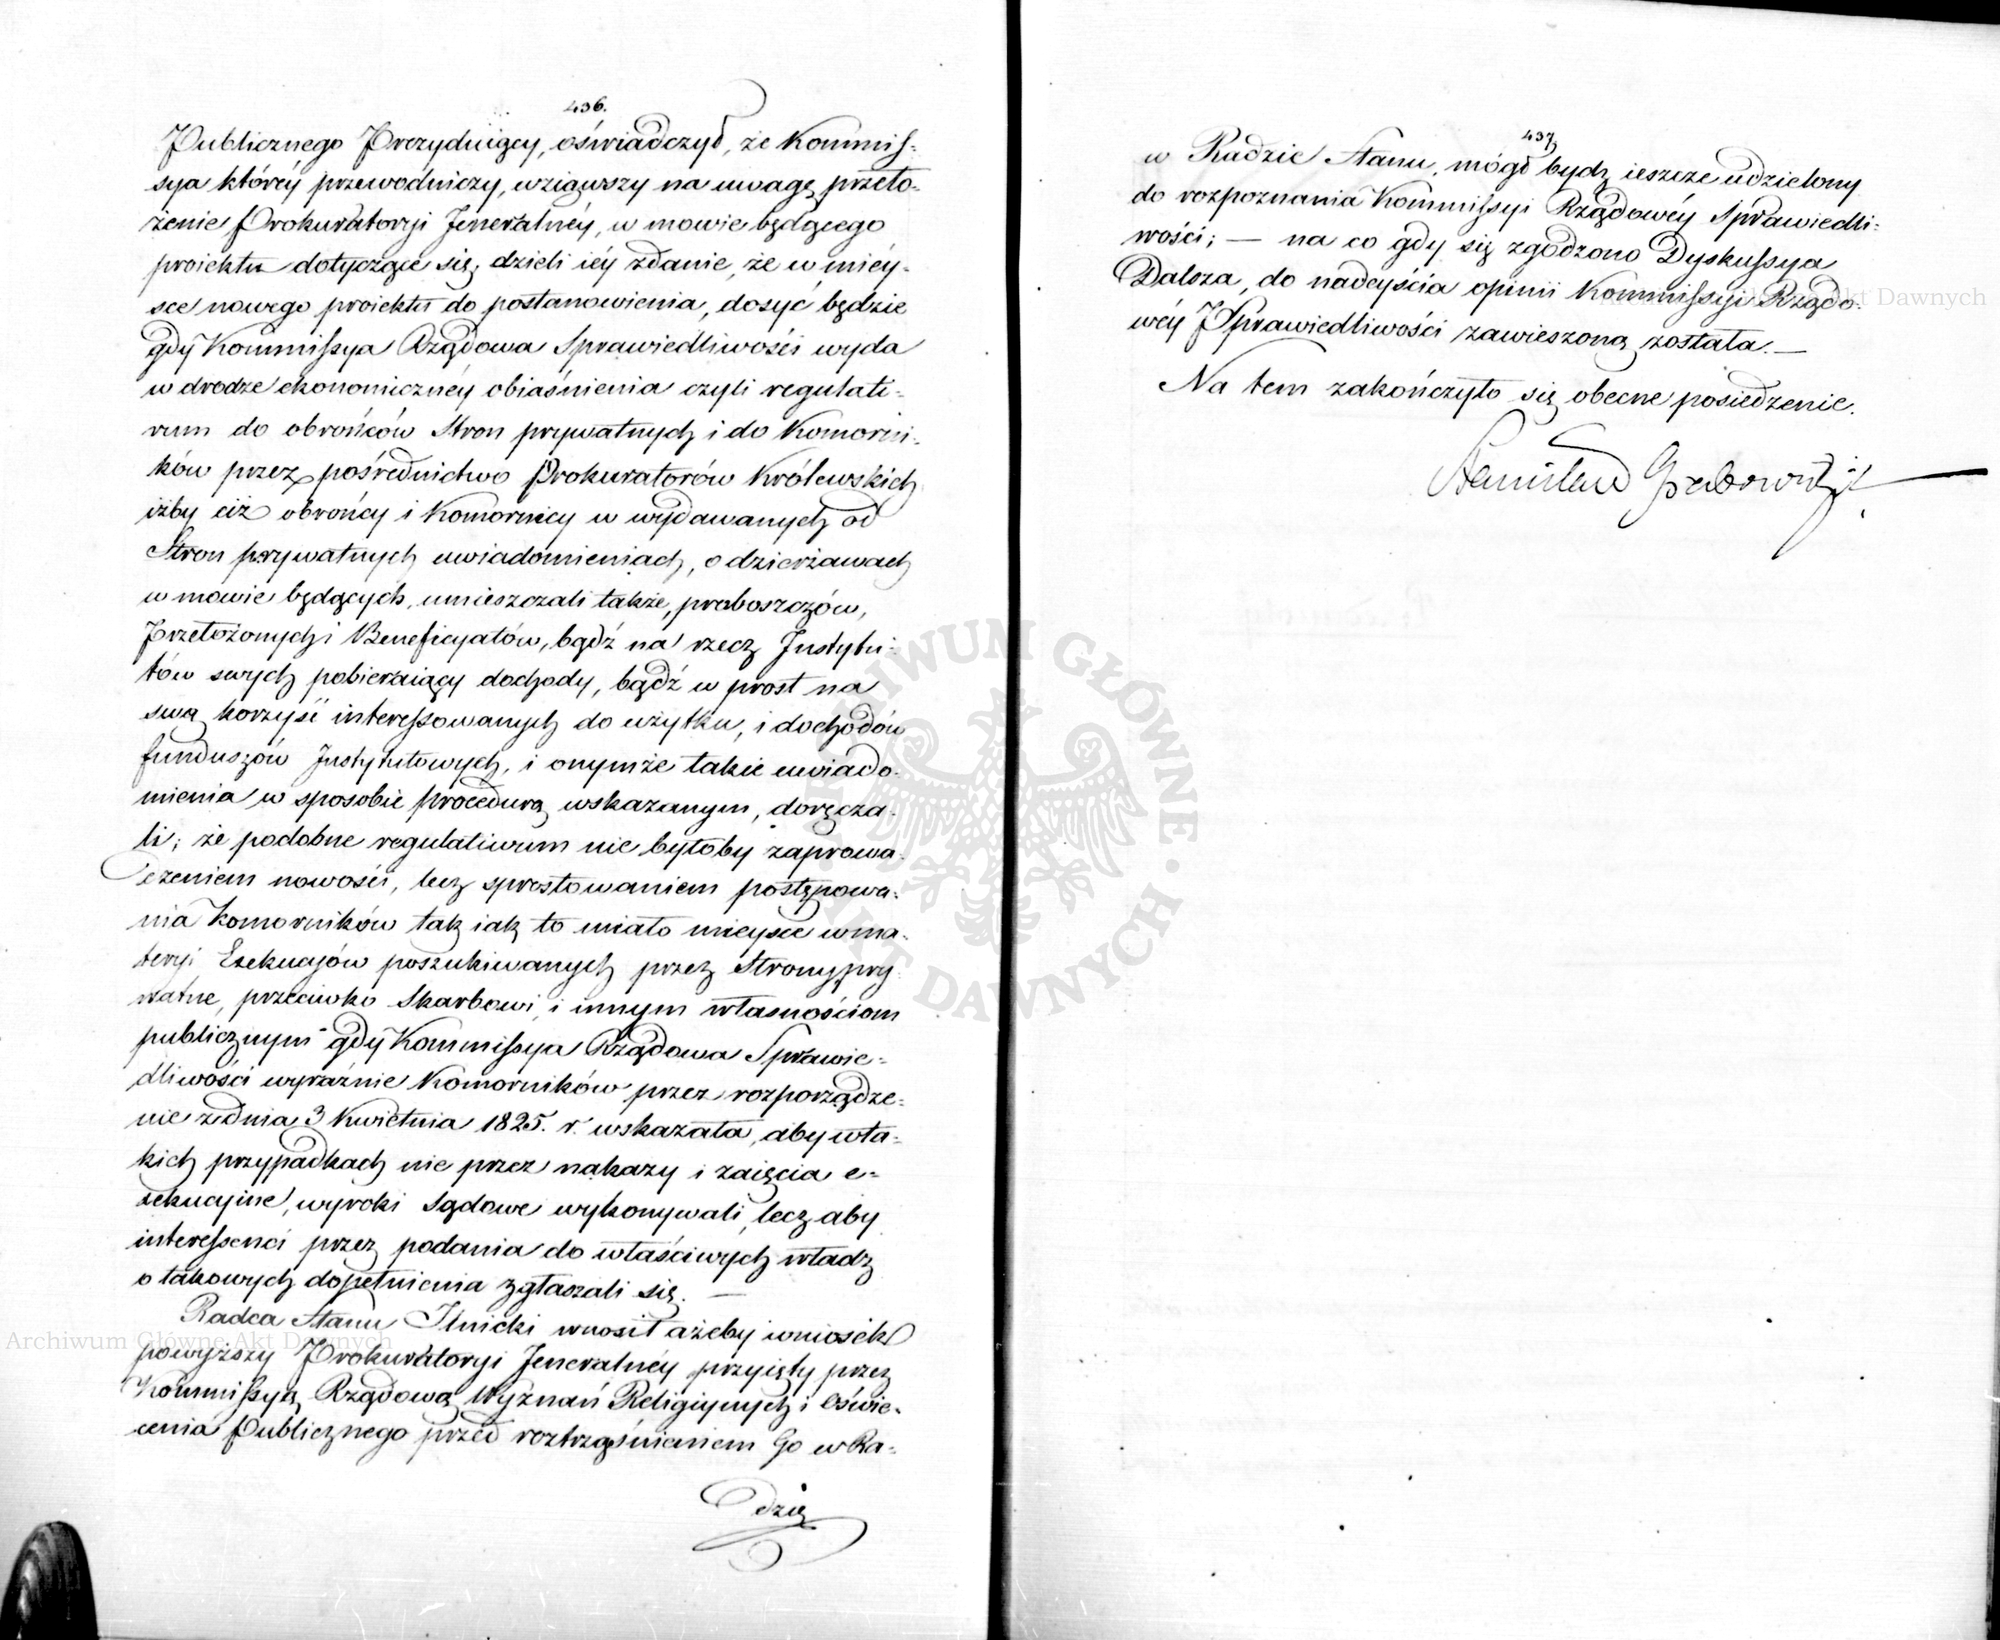 436.
Publicznego Prezyduiący, oświadczył, że Kommis-
sya którey przewodniczy, wziąwszy na uwagę przeło-
żenie Prokuratoryi Jeneralnéy, w mowie będącego
proiektu dotyczące się, dzieli iéy zdanie, że w miey-
sce nowego proiektu do postanowienia, dosyć będzie
gdy Kommissya Rządowa Sprawiedliwości wyda
w drodze ekonomicznéy obiaśnienia czyli regulati-
vum do obrońców Stron prywatnych i do Komorni-
ków przez pośrednictwo Prokuratorów Królewskich
iżby ciż obrońcy i Komornicy w wydawanych od
Stron prywatnych uwiadomieniach, o dzierżawach
w mowie będących, umieszczali także, proboszczów,
Przełożonych i Beneficyatów, bądź na rzecz Instytu-
tów swych pobieraiący dochody, bądź w prost na
swą korzyść interessowanych do użytku, i dochodów
funduszów Instytutowych, i onymże takie uwiado-
mienia w sposobie procedurą wskazanym, doręcza-
li; że podobne regulativum nie byłoby zaprowa-
dzeniem nowości, lecz sprostowaniem postępowa-
nia Komorników tak iak to miało mieysce w ma-
teryi Exekucyów poszukiwanych przez Strony pry-
watne, przeciwko Skarbowi, i innym własnościom
publicznym gdy Kommissya Rządowa Sprawie-
dliwości wyraźnie Komorników przez rozporządze-
nie z dnia 3 Kwietnia 1825. r. wskazała, aby w ta-
kich przypadkach nie przez nakazy i zaięcia e-
xekucyine, wyroki Sądowe wykonywali, lecz aby
interessenci przez podania do właściwych władz
o takowych dopełnienia zgłaszali się. —
Radca Stanu Ilnicki wnosił ażeby wniosek
powyższy Prokuratoryi Jeneralnéy przyięty przez
Kommissyą Rządową Wyznań Religiynych i Oświe-
cenia Publicznego przed roztrząśnieniem Go w Ra-
dzie
437
w Radzie Stanu, mógł bydź ieszcze udzielony
do rozpoznania Kommissyi Rządowéy Sprawiedli-
wości; — na co gdy się zgodzono Dyskussya
Dalsza, do nadeyścia opinii Kommissyi Rządo-
wéy Sprawiedliwości zawieszoną została. —
Na tem zakończyło się obecne posiedzenie.
Stanisław Grabowski
ARCHIWUM GŁÓWNE AKT DAWNYCH
Archiwum Główne Akt Dawnych
Akt Dawnych